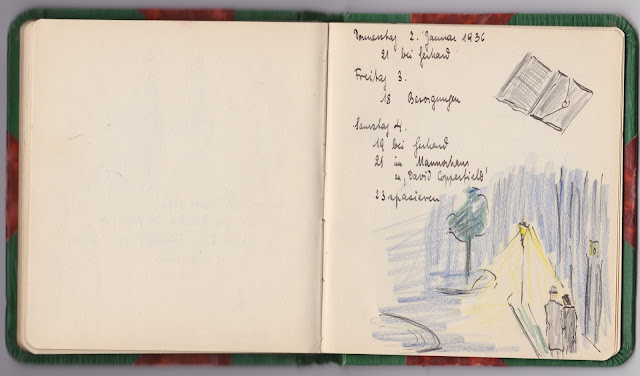 Donnerstag 2. Januar 1936
21 bei Gerhard
Freitag 3.
18 Besorgungen
Samstag 4.
19 bei Gerhard
21 im
"David Copperfield"
23 spazieren